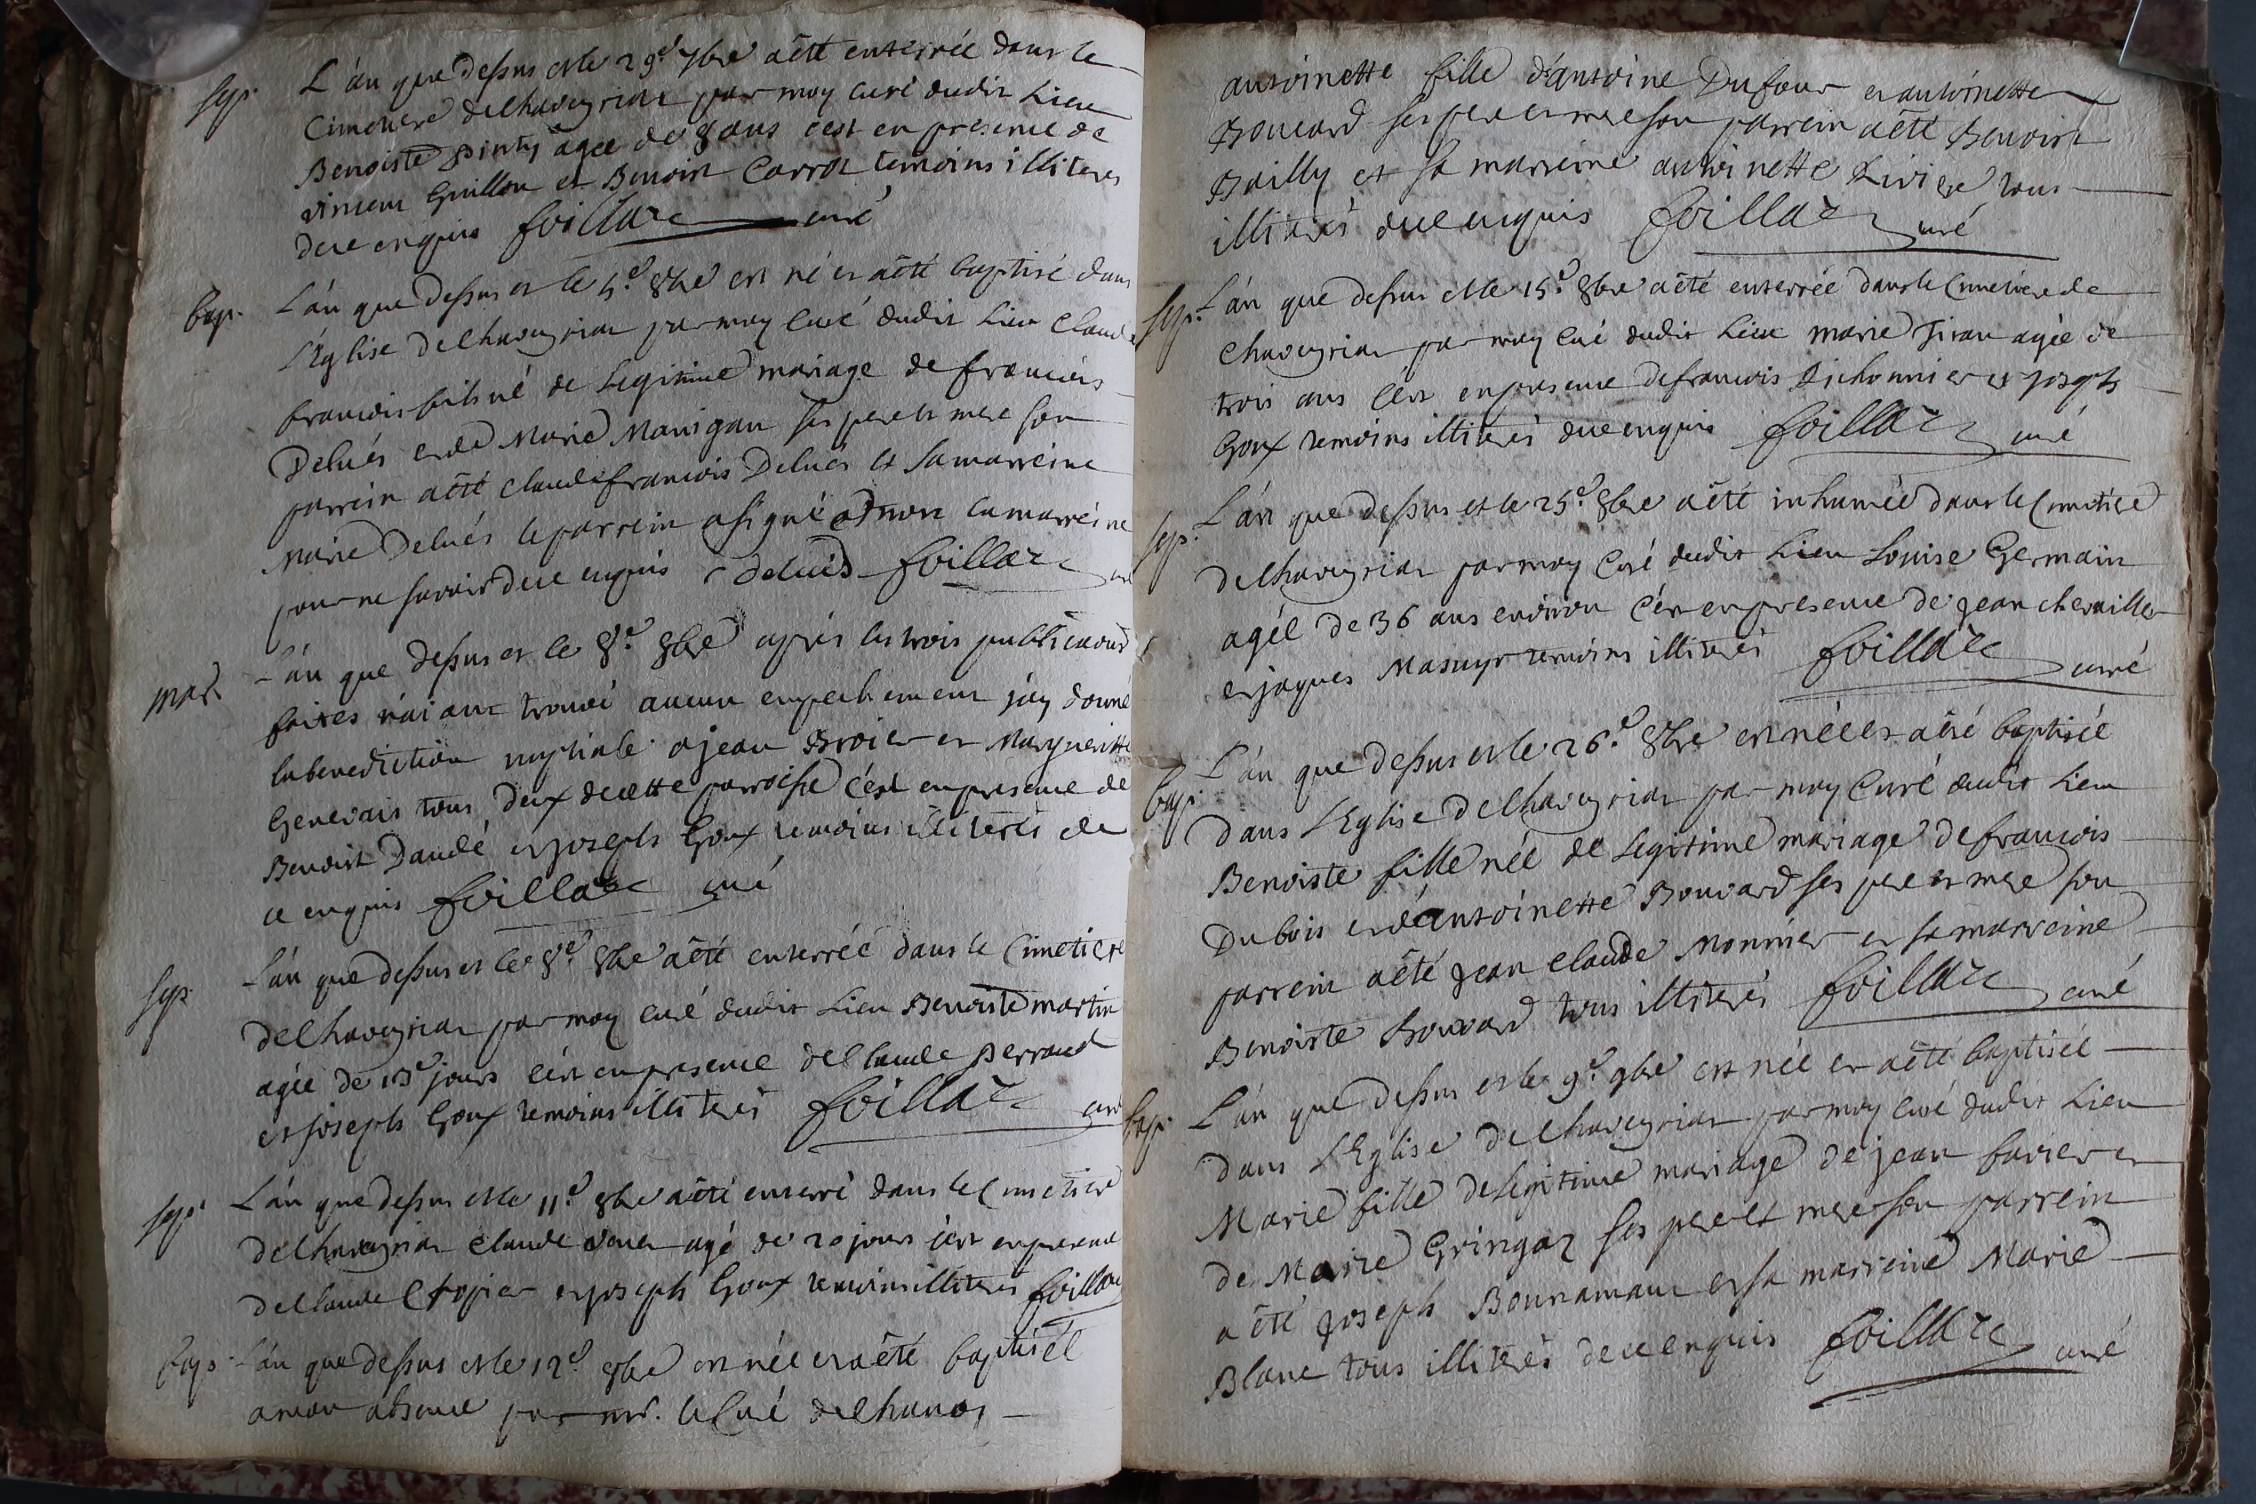 sep. L'án que dessus et le 29.e 7bre a êté enterrée dans le
Cimetiere de Chaveyriat par moy curé dudit Lieu
Benoiste agée de 8 ans c'est en presence de
vincent Guillon et Benoist Carrot temoins illiteres
de ce enquis foillard curé
bap. L'án que dessus et le 4.e 8bre est né et a êté baptisé dans
L'Eglise de Chaveyriat par moy curé dudit Lieu Claude
francois fils né de Legitime mariage de francois
Delués et de Marie Manigau ses pere et mere son
parrein a êté claude francois Delués et sa marreine
Marie Delués le parrein a signé et non la marreine
pour ne savoir de ce enquis delués foillard curé
mar. L'án que dessus et le 8.e 8bre aprés les trois publications
faites n'aiant trouvé aucun empechement j'ay donné
la benediction nuptiale a jean Broier et Margueritte
Genevais tous deux de cette parroisse c'est en presence de
Benoist Daudé et joseph Goux temoins illiterés de
ce enquis foillard curé
sep. L'án que dessus et le 8.e 8bre a êté enterrée dans le Cimetiere
de Chaveyriat par moy curé dudit Lieu Benoiste martin
agée de 13 jours c'est en presence de Claude perraud
et joseph Goux temoins illiterés foillard curé
sep. L'án que dessus et le 11.e 8bre a êté enterré dans le Cimetiere
de Chaveyriat Claude agé de 20 jours c'est en presence
de Claude et joseph Goux temoins illiterés foillard
bap. L'án que dessus et le 12.e 8bre est née et a êté baptisée
a mon absence par mr. le Curé de Chanos
antoinette fille d'antoine Dufour et antoinette
Bouvard ses pere et mere son parrein a êté Benoist
Bailly et sa marreine antoinette Riviere tous
illiterés de ce enquis foillard curé
sep. L'án que dessus et le 15.e 8bre a êté enterrée dans le Cimetiere de
Chaveyriat par moy curé dudit Lieu marie Tiran agée de
trois ans c'est en presence de francois Dichonnier et joseph
Goux temoins illiterés de ce enquis foillard curé
sep. L'án que dessus et le 25.e 8bre a êté inhumée dans le Cimetiere
de Chaveyriat par moy Curé dudit Lieu Louise Germain
agée de 36 ans environ c'est en presence de jean chevailler
et jaques Masuyr temoins illiterés foillard curé
bap. L'án que dessus et le 26.e 8bre est née et a êté baptisée
dans L'Eglise de Chaveyriat par moy Curé dudit Lieu
Benoiste fille née de Legitime mariage de francois
Dubois et d'antoinette Bouvard ses pere et mere son
parrein a êté jean claude Monnier et sa marreine
Benoiste Bouvard tous illiterés foillard curé
bap. L'án que dessus et le 9.e 9bre est née et a êté baptisée
dans L'Eglise de Chaveyriat par moy curé dudit Lieu
Marie fille de Legitime mariage de jean favier et
de Marie Gringoz ses pere et mere son parrein
a êté joseph Bonnamour et sa marreine Marie
Blanc tous illiterés de ce enquis foillard curé